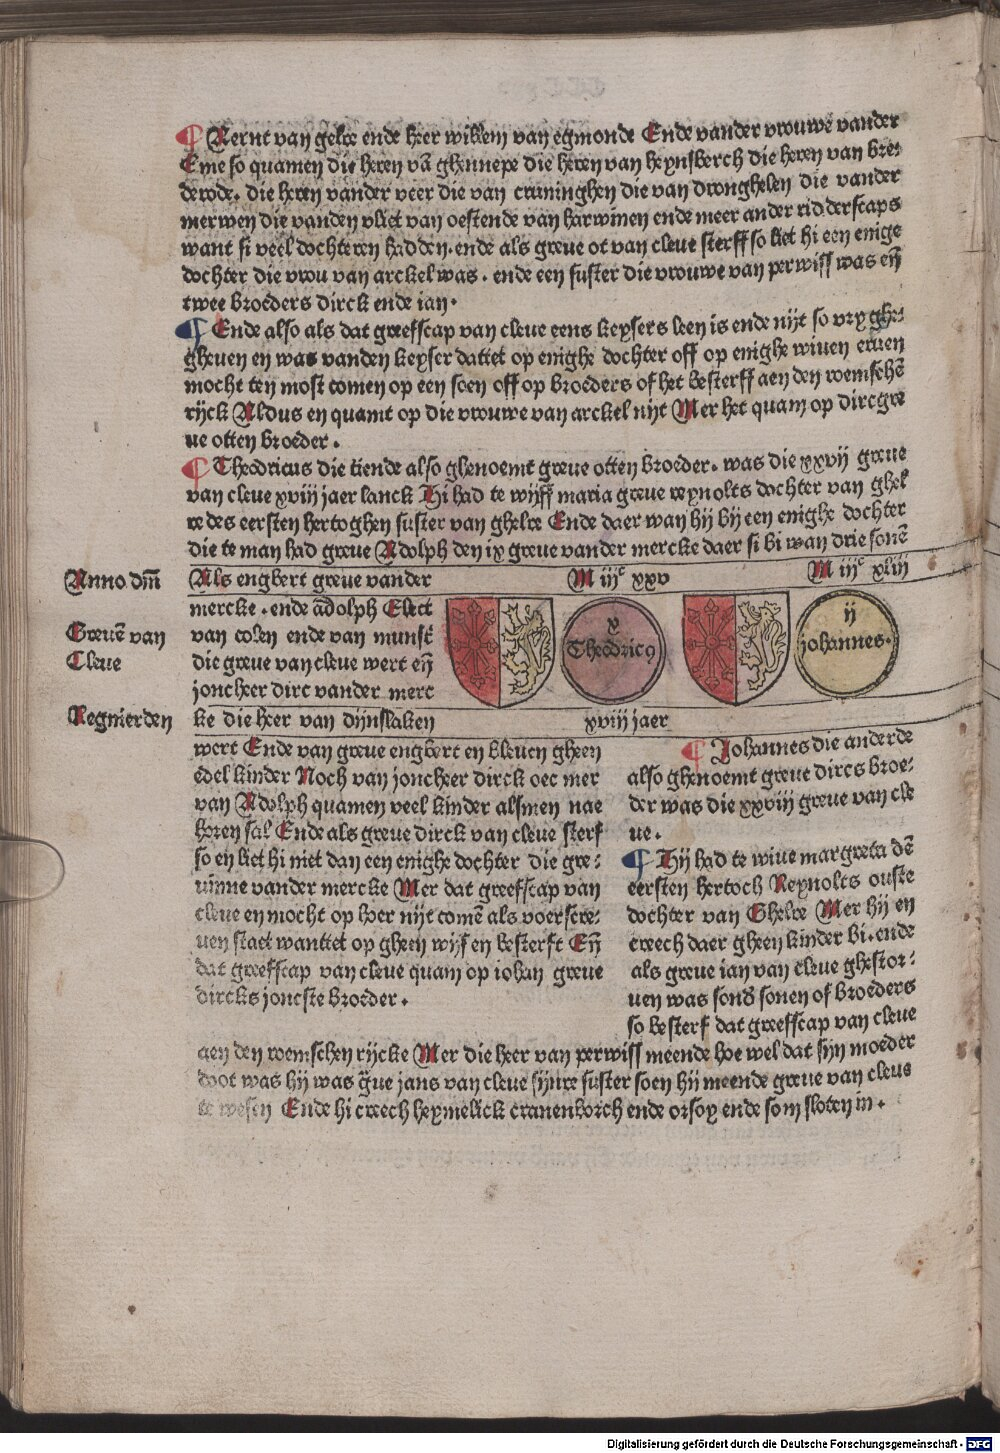 ¶ Aernt van gelre ende heer willem van egmonde Ende vander vrouwe vander
Eme so quamen die heren vā ghennepe die heren van heynsberch die heren van bre-
derode. die heren vander veer die van cruninghen die van dronghelen die vander
merwen die vanden vliet van oestende van harwinen ende meer ander ridderscaps
want si veel dochteren hadden. ende als greve ot van cleve sterff so liet hi een enige
dochter die vrou van arckel was. ende een suster die vrouwe van perwiss was eñ
twee broeders dirck ende ian.
¶ Ende also als dat greefscap van cleve eens keysers leen is ende nijt so vry ghe-
gheven en was vanden keyser dattet op enighe dochter off op enighe wiven erven
mocht ten most comen op een soen off op broeders of het besterff aen den roemschē
rijck Aldus en quamt op die vrouwe van arckel nijt Mer het quam op dirc gre
ve otten broeder.
¶ Theodricus die tiende also ghenoemt greve otten broeder. was die xxvij greve
van cleve xviij jaer lanck Hi had te wijff maria greve reynolts dochter van ghel
re des eersten hertoghen suster van ghelre Ende daer wan hij bij een enighe dochter
die te man had greve Adolph den ix greve vander mercke daer si bi wan drie sonē
Anno dm̄
Als engbert greve vander
M iijᶜ xxv
M iijᶜ xliij
mercke. ende adolph Elect
Grevē van
Cleve
van colen ende van munst̄
die greve van cleve wert eñ
joncheer dirc vander merc
x
Theodricꝯ
ij
johannes.
Regnierden
ke die heer van dijnslaken
xviij jaer
wert Ende van greve engbert en bleven gheen
edel kinder Noch van joncheer dirck oec mer
van Adolph quamen veel kinder alsmen nae
horen sal Ende als greve dirck van cleve sterf
so en liet hi niet dan een enighe dochter die gre-
vinne vander mercke Mer dat greefscap van
cleve en mocht op hoer nijt comē als voerscre-
ven staet wanttet op gheen wijf en besterft Eñ
dat greefscap van cleve quam op iohan greve
dircks joncste broeder.
¶ Johannes die anderde
also ghenoemt greve dircs broe-
der was die xxviij greve van cle
ve.
¶ Hij had te wive margreta dē
eersten hertoch Reynolts ouste
dochter van Ghelre Mer hij en
creech daer gheen kinder bi. ende
als greve ian van cleve ghestor-
ven was sond̄ sonen of broeders
so besterf dat greefscap van cleve
aen den roemschen rijcke Mer die heer van perwiss meende hoe wel dat sijn moeder
doot was hij was g̅ve jans van cleve sijnre suster soen hij meende greve van cleve
te wesen Ende hi creech heymelick cranenborch ende orsoy ende som sloten in.
Digitalisierung gefördert durch die Deutsche Forschungsgemeinschaft - DFG